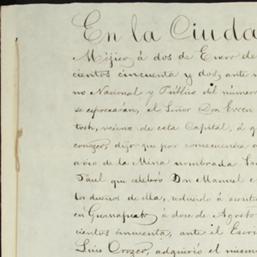 En la Ciuda
Méjico á dos de Enero de
cientos cincuenta y dos, ante m
no Nacional y Público del número
se espresarán, el Señor Don
toch, vecino de esta Capital, á q
conozco, dijo que por consecuencia
avío de la Mina nombrada San
Paul que celebró Don Manuel
los dueños de ella, reducido á escritu
en Guanajuato á doce de Agosto
cientos cincuenta, ante el Escri
Luis Orozco, adquirió el mismo